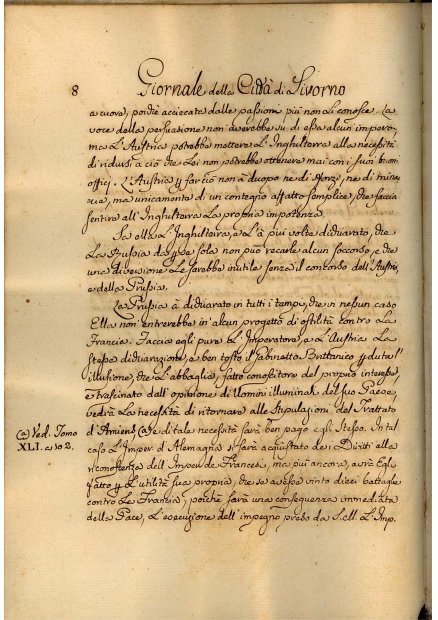 8 Giornale della Città di Livorno
a cuore, poichè acciecata dalle passioni più non li conosce. La
voce della persuazione non averebbe su di essa alcun impero,
ma L'Austria potrebbe mettere L'Inghilterra alla necessità
di ridursi a ciò che Lei non potrebbe ottenere mai con i suoi buoni
offici. L'Austria p far ciò non à duopo ne di sforzi, ne di minac
cie, ma unicamente di un contegno affatto semplice, che faccia
sentire all'Inghilterra La propria impotenza.
Sa ella L'Inghilterra, e Là più volte dichiarato, che
La Russia da se sola non può recarle alcun soccorso, e che
una diversione Le sarebbe inutile senza il concorso dell'Austria,
e della Prussia.
La Prussia à dichiarato in tutti i tempi, che in nessun caso
Ella non entrerebbe in alcun progetto di ostilità contro La
Francia. Faccia egli pure L'Imperatore, e L'Austria La
stessa dichiarazione, e ben tosto il Gabinetto Brittanico
illusione, che L'abbaglia, fatto conoscitore del proprio interesse,
e trascinato dall'opinione di Uomini illuminati del suo Paese,
vedrà La necessità di ritornare alle stipulazioni del Trattato
d'Amiens (a) e di tale necessità sarà ben pago egli stesso. In tal
caso L'Imper. d'Alemagna si sarà acquistato dei Diritti alla
riconoscenza dell'Imper. de Francesi, ma più ancora, avrà Egli
fatto p L'utilità sua propria, che se avesse vinto dieci battaglie
contro La Francia; poichè sarà una conseguenza immediata
della Pace, L'esecuzione dell'impegno preso da S. M. L'Imp.
(a) Ved. Tomo
XLI. a 102.